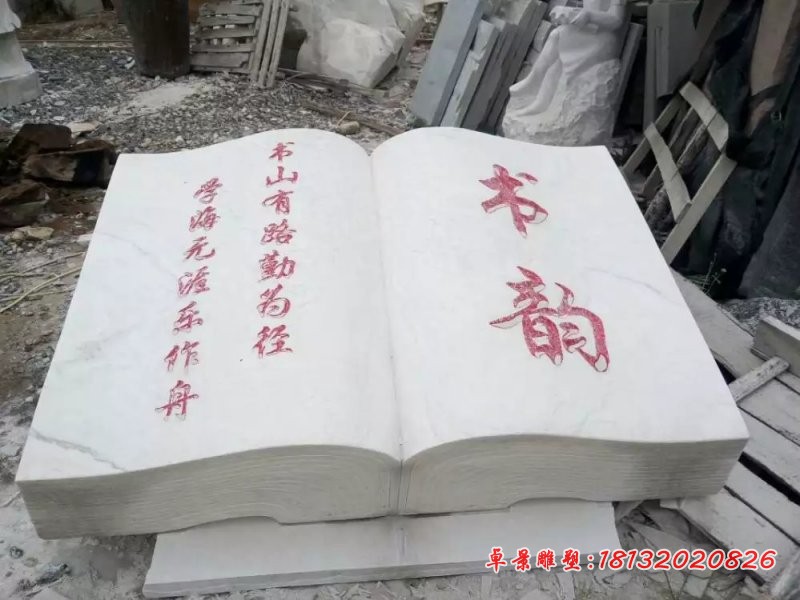 书韵
书山有路勤为径
学海无涯乐作舟
卓景雕塑:18132020826